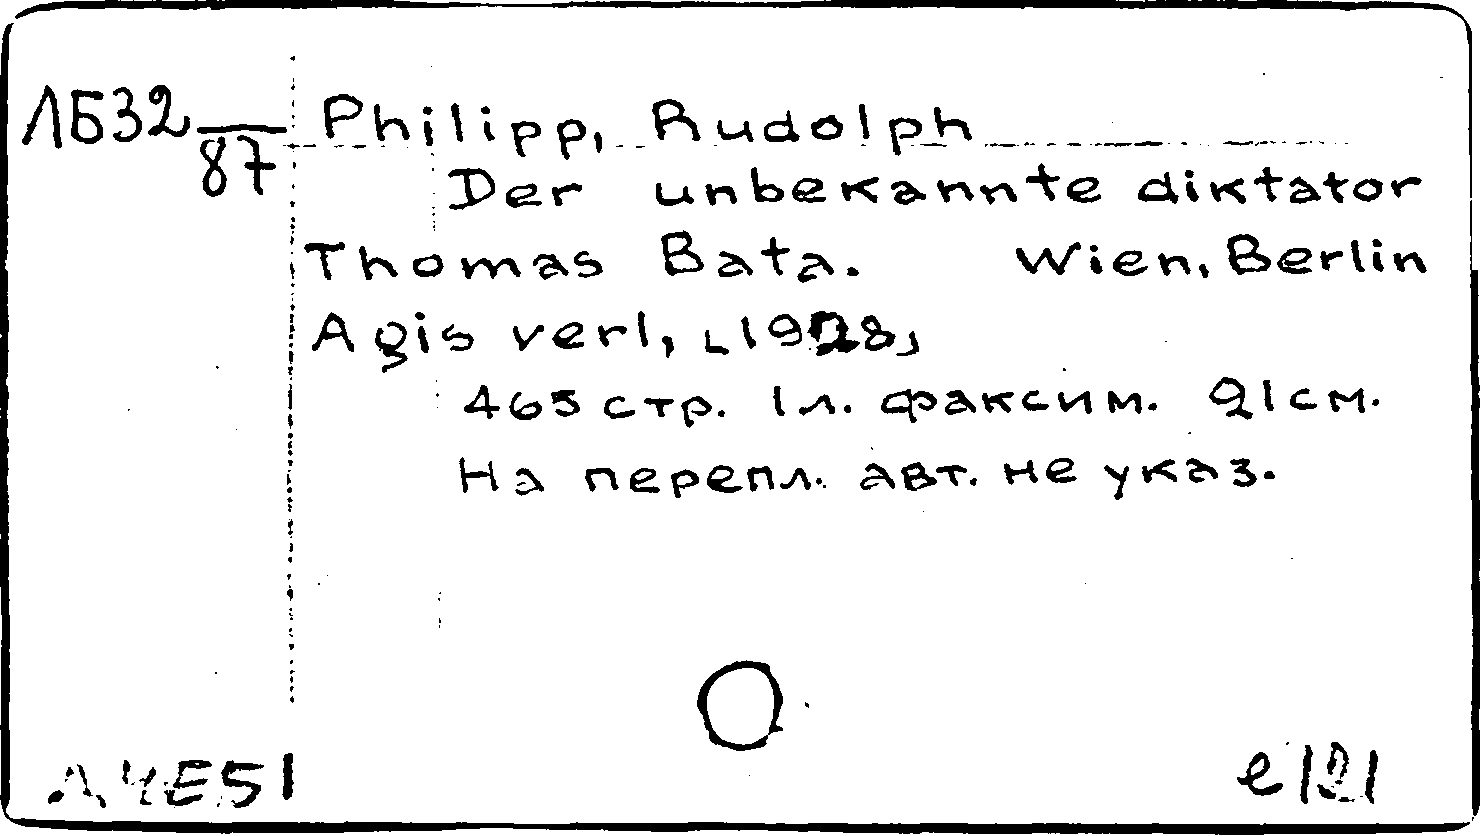 ЛБ32/87
Philipp, Rudolph
Der unbekannte diktator
Thomas Bata. Wien, Berlin
Agis verl, [1928]
465 стр. 1 л. факсим. 21 см.
На перепл. авт. не указ.